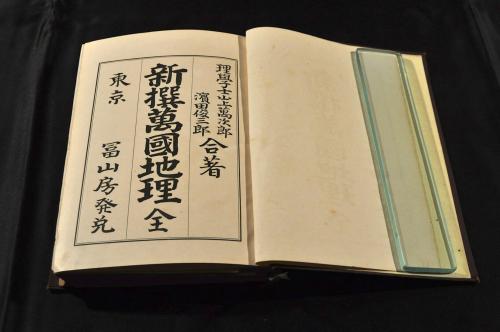 理學士山上萬次郎
濱田俊三郎
合著
新撰萬國地理 全
東京 冨山房発兌